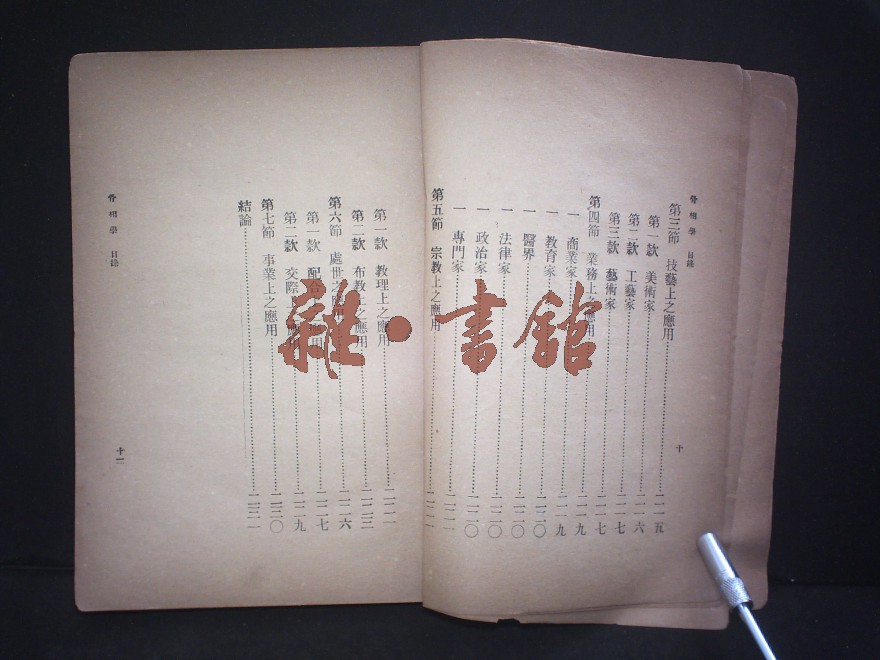 骨相學 目錄
第三節 技藝上之應用……二一五
第一款 美術家……二一六
第二款 工藝家……二一七
第三款 藝術家……二一七
第四節 業務上之應用……二一九
一 商業家……二一九
一 教育家……二二〇
一 醫界……二二〇
一 法律家……二二〇
一 政治家……二二〇
一 專門家……二二一
第五節 宗教上之應用……二二一
十
第一款 教理上之應用……二二一
第二款 布教上之應用……二二三
第六節 處世之應用……二二六
第一款 配合應用……二二七
第二款 交際上應用……二二九
第七節 事業上之應用……二三〇
結論……二三一
骨相學 目錄
十一
雜·書館